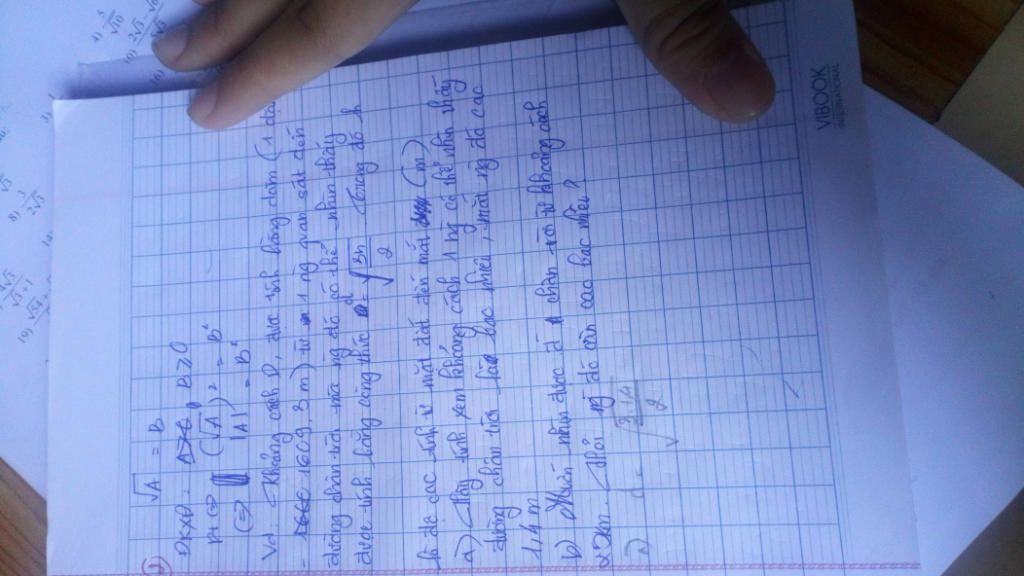 √A = B
ĐKXĐ: B ≥ 0
pt ⇔ (√A)² = B²
⇔ |A| = B²
Vd: Khoảng cách D, được tính bằng dặm (1 dặ
= 1609,3 m) từ 1 ng quan sát đến
đường chân trời mà ng đó có thể nhìn thấy
được tính bằng công thức d = √(3h/2) Trong đó h
là độ cao tính từ mặt đất đến mắt (m)
a) Hãy tính xem khoảng cách 1 ng có thể nhìn thấy
đường chân trời là bao nhiêu, mắt ng đó cao
1,4 m
b) Muốn nhìn được chân trời từ khoảng cách
25km. Hỏi ng đó cần cao bao nhiêu?
a) d = √(3.1,4/2)
VIBOOK
INTERNATIONAL
4) 5/√10
8) 3/2√5